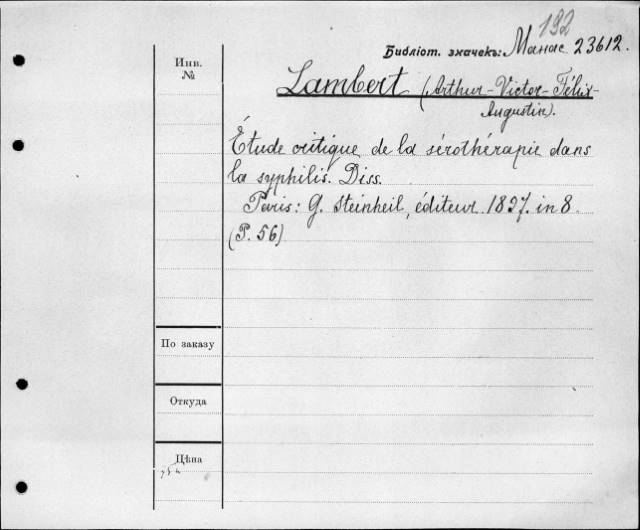 192
Библіот. значекъ: Манас 23612.
Инв.
№
Lambert (Arthur-Victor-Félix-
Augustin).
Étude critique de la sérothérapie dans
la syphilis. Diss.
Paris: G. Steinheil, éditeur 1897. in 8.
(P. 56)
По заказу
Откуда
Цѣна